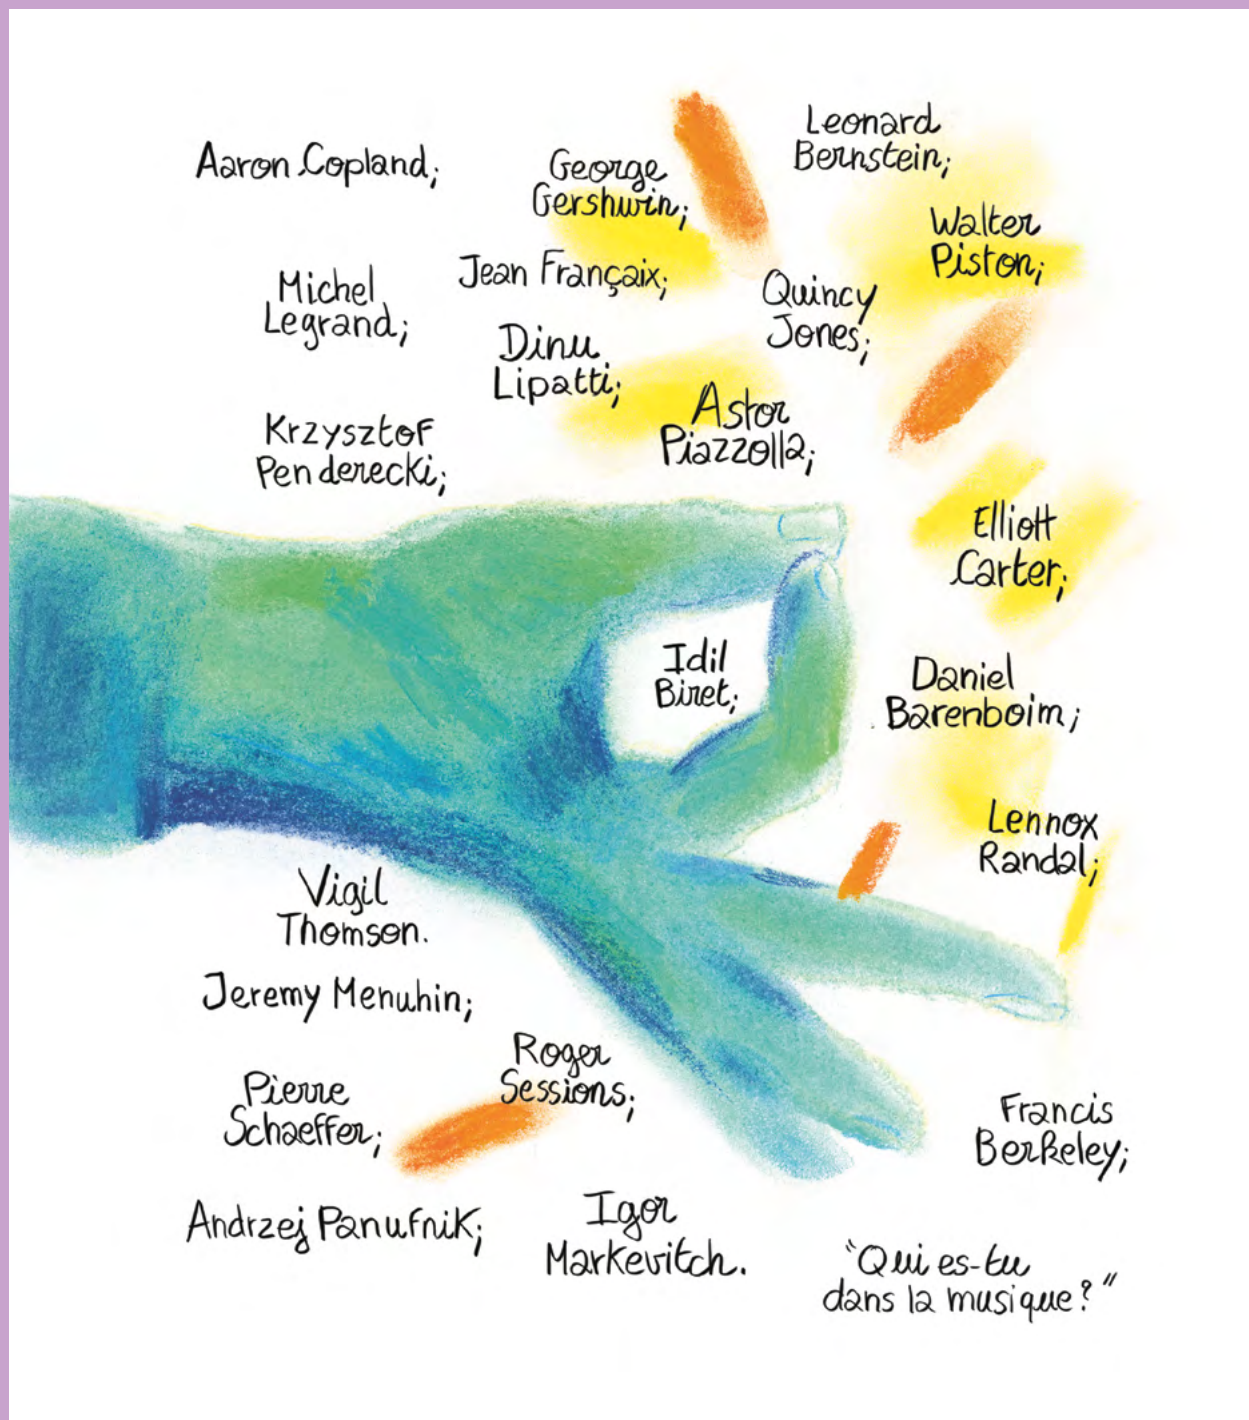 Aaron Copland;
George
Gershwin;
Leonard
Bernstein;
Walter
Piston;
Michel
Legrand;
Jean Françaix;
Quincy
Jones;
Dinu
Lipatti;
Astor
Piazzolla;
Krzysztof
Penderecki;
Elliott
Carter;
Idil
Biret;
Daniel
Barenboim;
Lennox
Randal;
Vigil
Thomson.
Jeremy Menuhin;
Roger
Sessions;
Pierre
Schaeffer;
Francis
Berkeley;
Andrzej Panufnik;
Igor
Markevitch.
"Qui es-tu
dans la musique?"